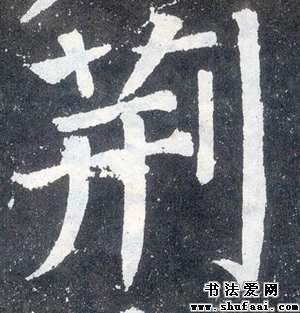 荆
书法爱网
www.shufaai.com